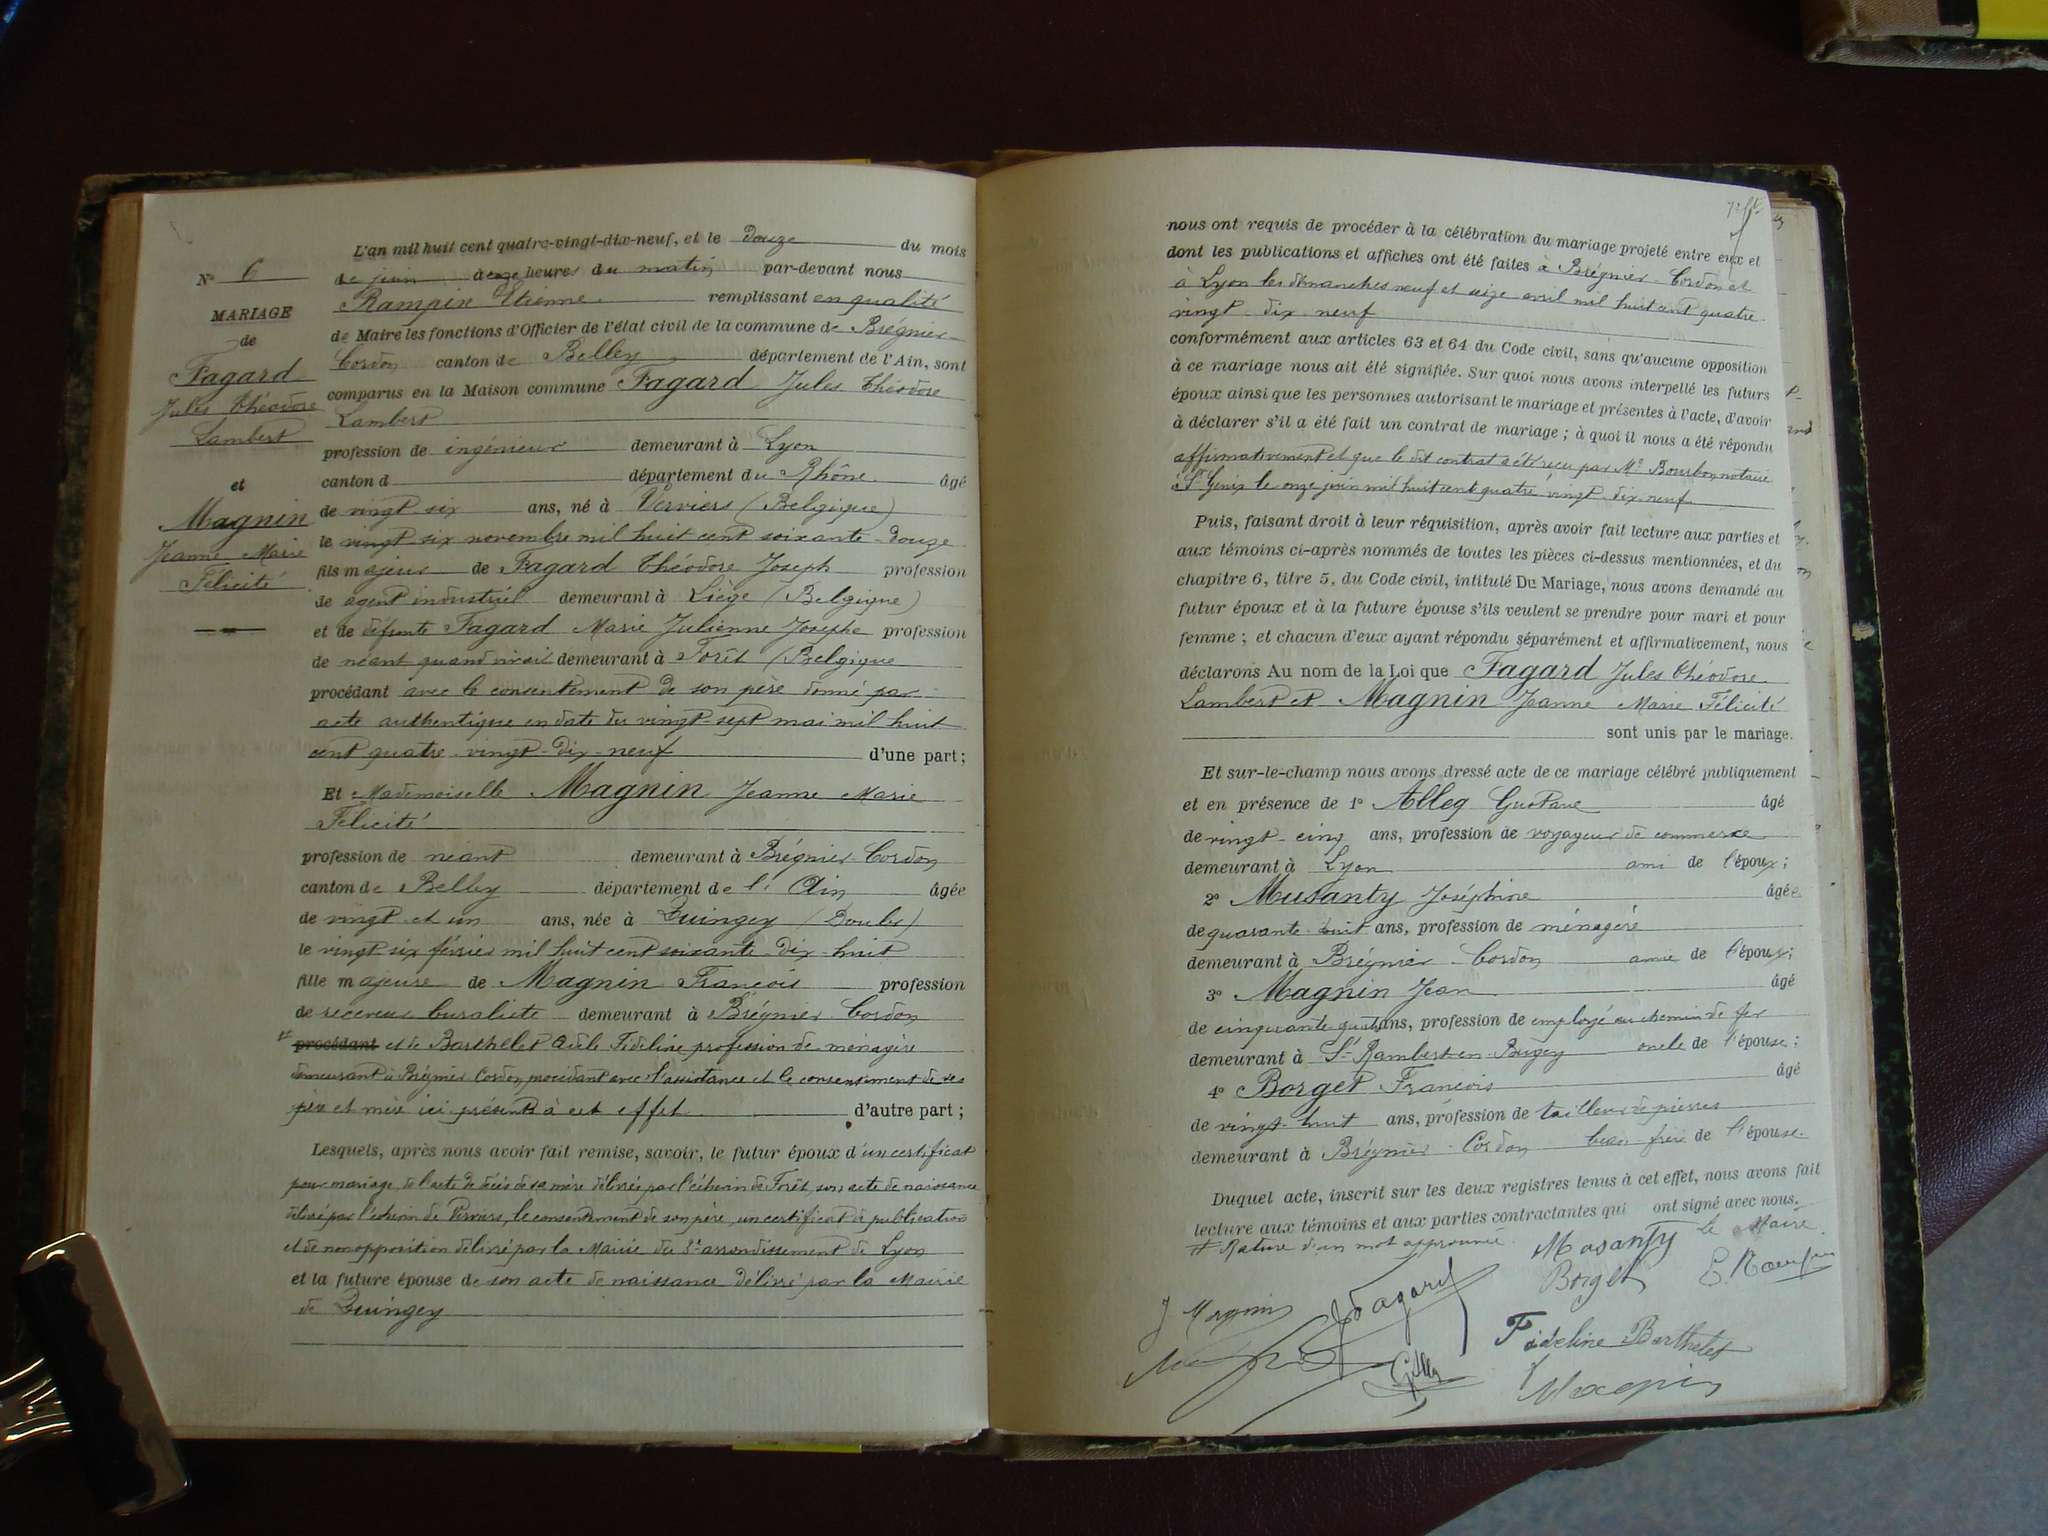 N° 6
MARIAGE
de
Fagard
Jules Théodore
Lambert
et
Magnin
Jeanne Marie
Félicité
L'an mil huit cent quatre-vingt-dix-neuf, et le douze du mois
de juin à onze heures du matin par-devant nous
Rampin Etienne remplissant en qualité
de Maire les fonctions d'Officier de l'état civil de la commune de Brégnier-
Cordon canton de Belley département de l'Ain, sont
comparus en la Maison commune Fagard Jules Théodore
Lambert
profession de ingénieur demeurant à Lyon
canton d département du Rhône âgé
de vingt six ans, né à Verviers (Belgique)
le vingt six novembre mil huit cent soixante-douze
fils majeur de Fagard Théodore Joseph profession
de agent industriel demeurant à Liège (Belgique)
et de défunte Fagard Marie Julienne Josephe profession
de néant quand vivait demeurant à Forêt (Belgique
procédant avec le consentement de son père donné par
acte authentique en date du vingt-sept mai mil huit
cent quatre-vingt-dix-neuf d'une part;
Et Mademoiselle Magnin Jeanne Marie
Félicité
profession de néant demeurant à Brégnier-Cordon
canton de Belley département de l'Ain âgée
de vingt et un ans, née à Quingey (Doubs)
le vingt six février mil huit cent soixante-dix-huit
fille majeure de Magnin François profession
de receveur buraliste demeurant à Brégnier-Cordon
procédant et de Barthelet Adèle Fideline profession de ménagère
demeurant à Brégnier-Cordon, procédant avec l'assistance et le consentement de ses
père et mère ici présents à cet effet d'autre part;
Lesquels, après nous avoir fait remise, savoir, le futur époux d'un certificat
pour mariage, de l'acte de décès de sa mère délivré par l'échevin de Forêt, son acte de naissance
délivré par l'échevin de Verviers, le consentement de son père, un certificat de publication
et de non opposition délivré par la Mairie du 3e arrondissement de Lyon
et la future épouse de son acte de naissance délivré par la Mairie
de Quingey
nous ont requis de procéder à la célébration du mariage projeté entre eux et
dont les publications et affiches ont été faites à Brégnier-Cordon et
à Lyon les dimanches neuf et seize avril mil huit cent quatre
vingt-dix-neuf
conformément aux articles 63 et 64 du Code civil, sans qu'aucune opposition
à ce mariage nous ait été signifiée. Sur quoi nous avons interpellé les futurs
époux ainsi que les personnes autorisant le mariage et présentes à l'acte, d'avoir
à déclarer s'il a été fait un contrat de mariage; à quoi il nous a été répondu
affirmativement et que le dit contrat a été reçu par Me Bourbon, notaire
à St Genix le onze juin mil huit cent quatre vingt-dix-neuf
Puis, faisant droit à leur réquisition, après avoir fait lecture aux parties et
aux témoins ci-après nommés de toutes les pièces ci-dessus mentionnées, et du
chapitre 6, titre 5, du Code civil, intitulé Du Mariage, nous avons demandé au
futur époux et à la future épouse s'ils veulent se prendre pour mari et pour
femme; et chacun d'eux ayant répondu séparément et affirmativement, nous
déclarons Au nom de la Loi que Fagard Jules Théodore
Lambert et Magnin Jeanne Marie Félicité
sont unis par le mariage.
Et sur-le-champ nous avons dressé acte de ce mariage célébré publiquement
et en présence de 1° Alleq Gustave âgé
de vingt-cinq ans, profession de voyageur de commerce
demeurant à Lyon ami de l'époux;
2° Musanty Joséphine âgée
de quarante-huit ans, profession de ménagère
demeurant à Brégnier-Cordon amie de l'épouse;
3° Magnin Jean âgé
de cinquante quatre ans, profession de employé au chemin de fer
demeurant à St-Rambert-en-Bugey oncle de l'épouse;
4° Borget François âgé
de vingt-huit ans, profession de tailleur de pierres
demeurant à Brégnier-Cordon beau-frère de l'épouse.
Duquel acte, inscrit sur les deux registres tenus à cet effet, nous avons fait
lecture aux témoins et aux parties contractantes qui ont signé avec nous.
Rature d'un mot approuvée. Musanty le Maire
Borget
J Magnin Fagard
Fideline Barthelet
Magnin